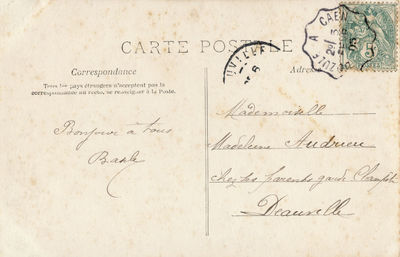 CARTE POSTALE
Correspondance
Tous les pays étrangers n'acceptent pas la
correspondance au recto, se renseigner à la Poste.
Bonjour à tous
A CAEN
Mademoiselle
Madeleine Audrieu
chez ses parents garde
Deauville